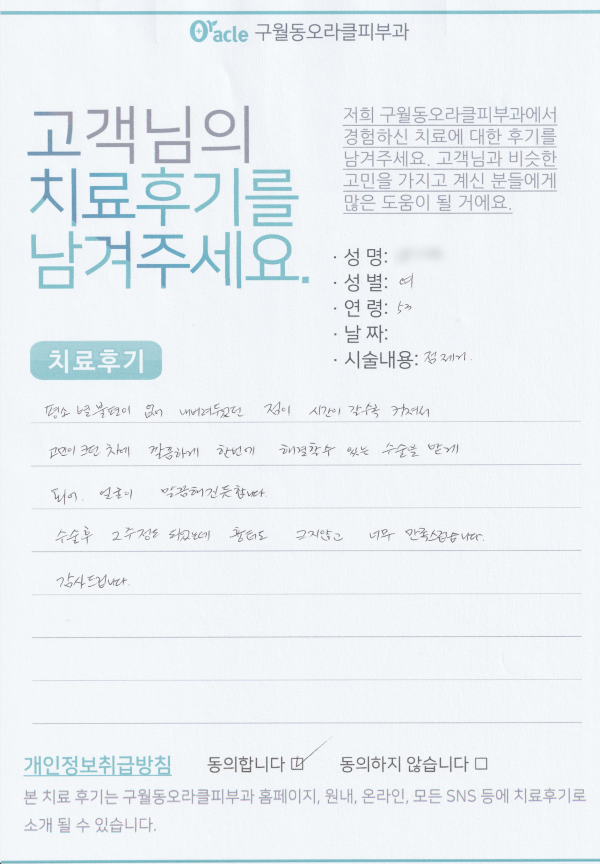 Oracle 구월동오라클피부과
고객님의
치료후기를
남겨주세요.
저희 구월동오라클피부과에서
경험하신 치료에 대한 후기를
남겨주세요. 고객님과 비슷한
고민을 가지고 계신 분들에게
많은 도움이 될 거에요.
· 성 명:
· 성 별: 여
· 연 령: 53
· 날 짜:
· 시술내용: 점제거.
치료후기
평소 별불편이 없어 내버려두었던 점이 시간이 갈수록 커져서
고민이 크던 차에 깔끔하게 한번에 해결할수 있는 수술을 받게
되어. 얼굴이 말끔해진듯합니다.
수술후 2주정도 되었는데 흉터도 크지않고 너무 만족스럽습니다.
감사드립니다.
개인정보취급방침 동의합니다 동의하지 않습니다
본 치료 후기는 구월동오라클피부과 홈페이지, 원내, 온라인, 모든 SNS 등에 치료후기로
소개 될 수 있습니다.